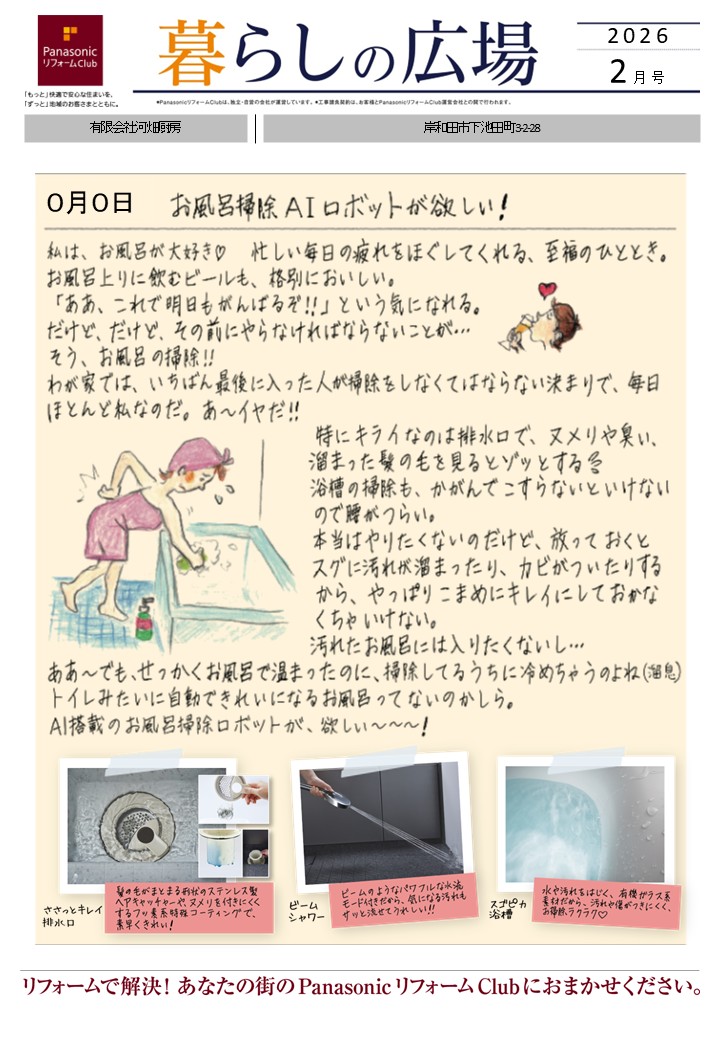 Panasonic
リフォームClub
「もっと」快適で安心な住まいを、
「ずっと」地域のお客さまとともに。
暮らしの広場
●PanasonicリフォームClubは、独立・自営の会社が運営しています。●工事請負契約は、お客様とPanasonicリフォームClub運営会社との間で行われます。
2026
2月号
有限会社河畑厨房
岸和田市下池田町3-2-28
○月○日 お風呂掃除AIロボットが欲しい!
私は、お風呂が大好き♡ 忙しい毎日の疲れをほぐしてくれる、至福のひととき。
お風呂上りに飲むビールも、格別においしい。
「ああ、これで明日もがんばるぞ!!」という気になれる。
だけど、だけど、その前にやらなければならないことが…
そう、お風呂の掃除!!
わが家では、いちばん最後に入った人が掃除をしなくてはならない決まりで、毎日
ほとんど私なのだ。あ〜イヤだ!!
特にキライなのは排水口で、ヌメリや臭い、
溜まった髪の毛を見るとゾッとする
浴槽の掃除も、かがんでこすらないといけない
ので腰がつらい。
本当はやりたくないのだけど、放っておくと
スグに汚れが溜まったり、カビがついたりする
から、やっぱりこまめにキレイにしておかな
くちゃいけない。
汚れたお風呂には入りたくないし…
ああ〜でも、せっかくお風呂で温まったのに、掃除してるうちに冷めちゃうのよね(溜息)
トイレみたいに自動できれいになるお風呂ってないのかしら。
AI搭載のお風呂掃除ロボットが、欲しい〜〜〜!
ささっとキレイ
排水口
髪の毛がまとまる形状のステンレス製
ヘアキャッチャーや、ヌメリを付きにくく
するフッ素系特殊コーティングで、
素早くきれい!
ビーム
シャワー
ビームのようなパワフルな水流
モード付きだから、気になる汚れも
サッと流せてうれしい!!
スゴピカ
浴槽
水や汚れをはじく、有機ガラス系
素材だから、汚れや傷がつきにくく、
お掃除ラクラク♡
リフォームで解決! あなたの街のPanasonicリフォームClubにおまかせください。